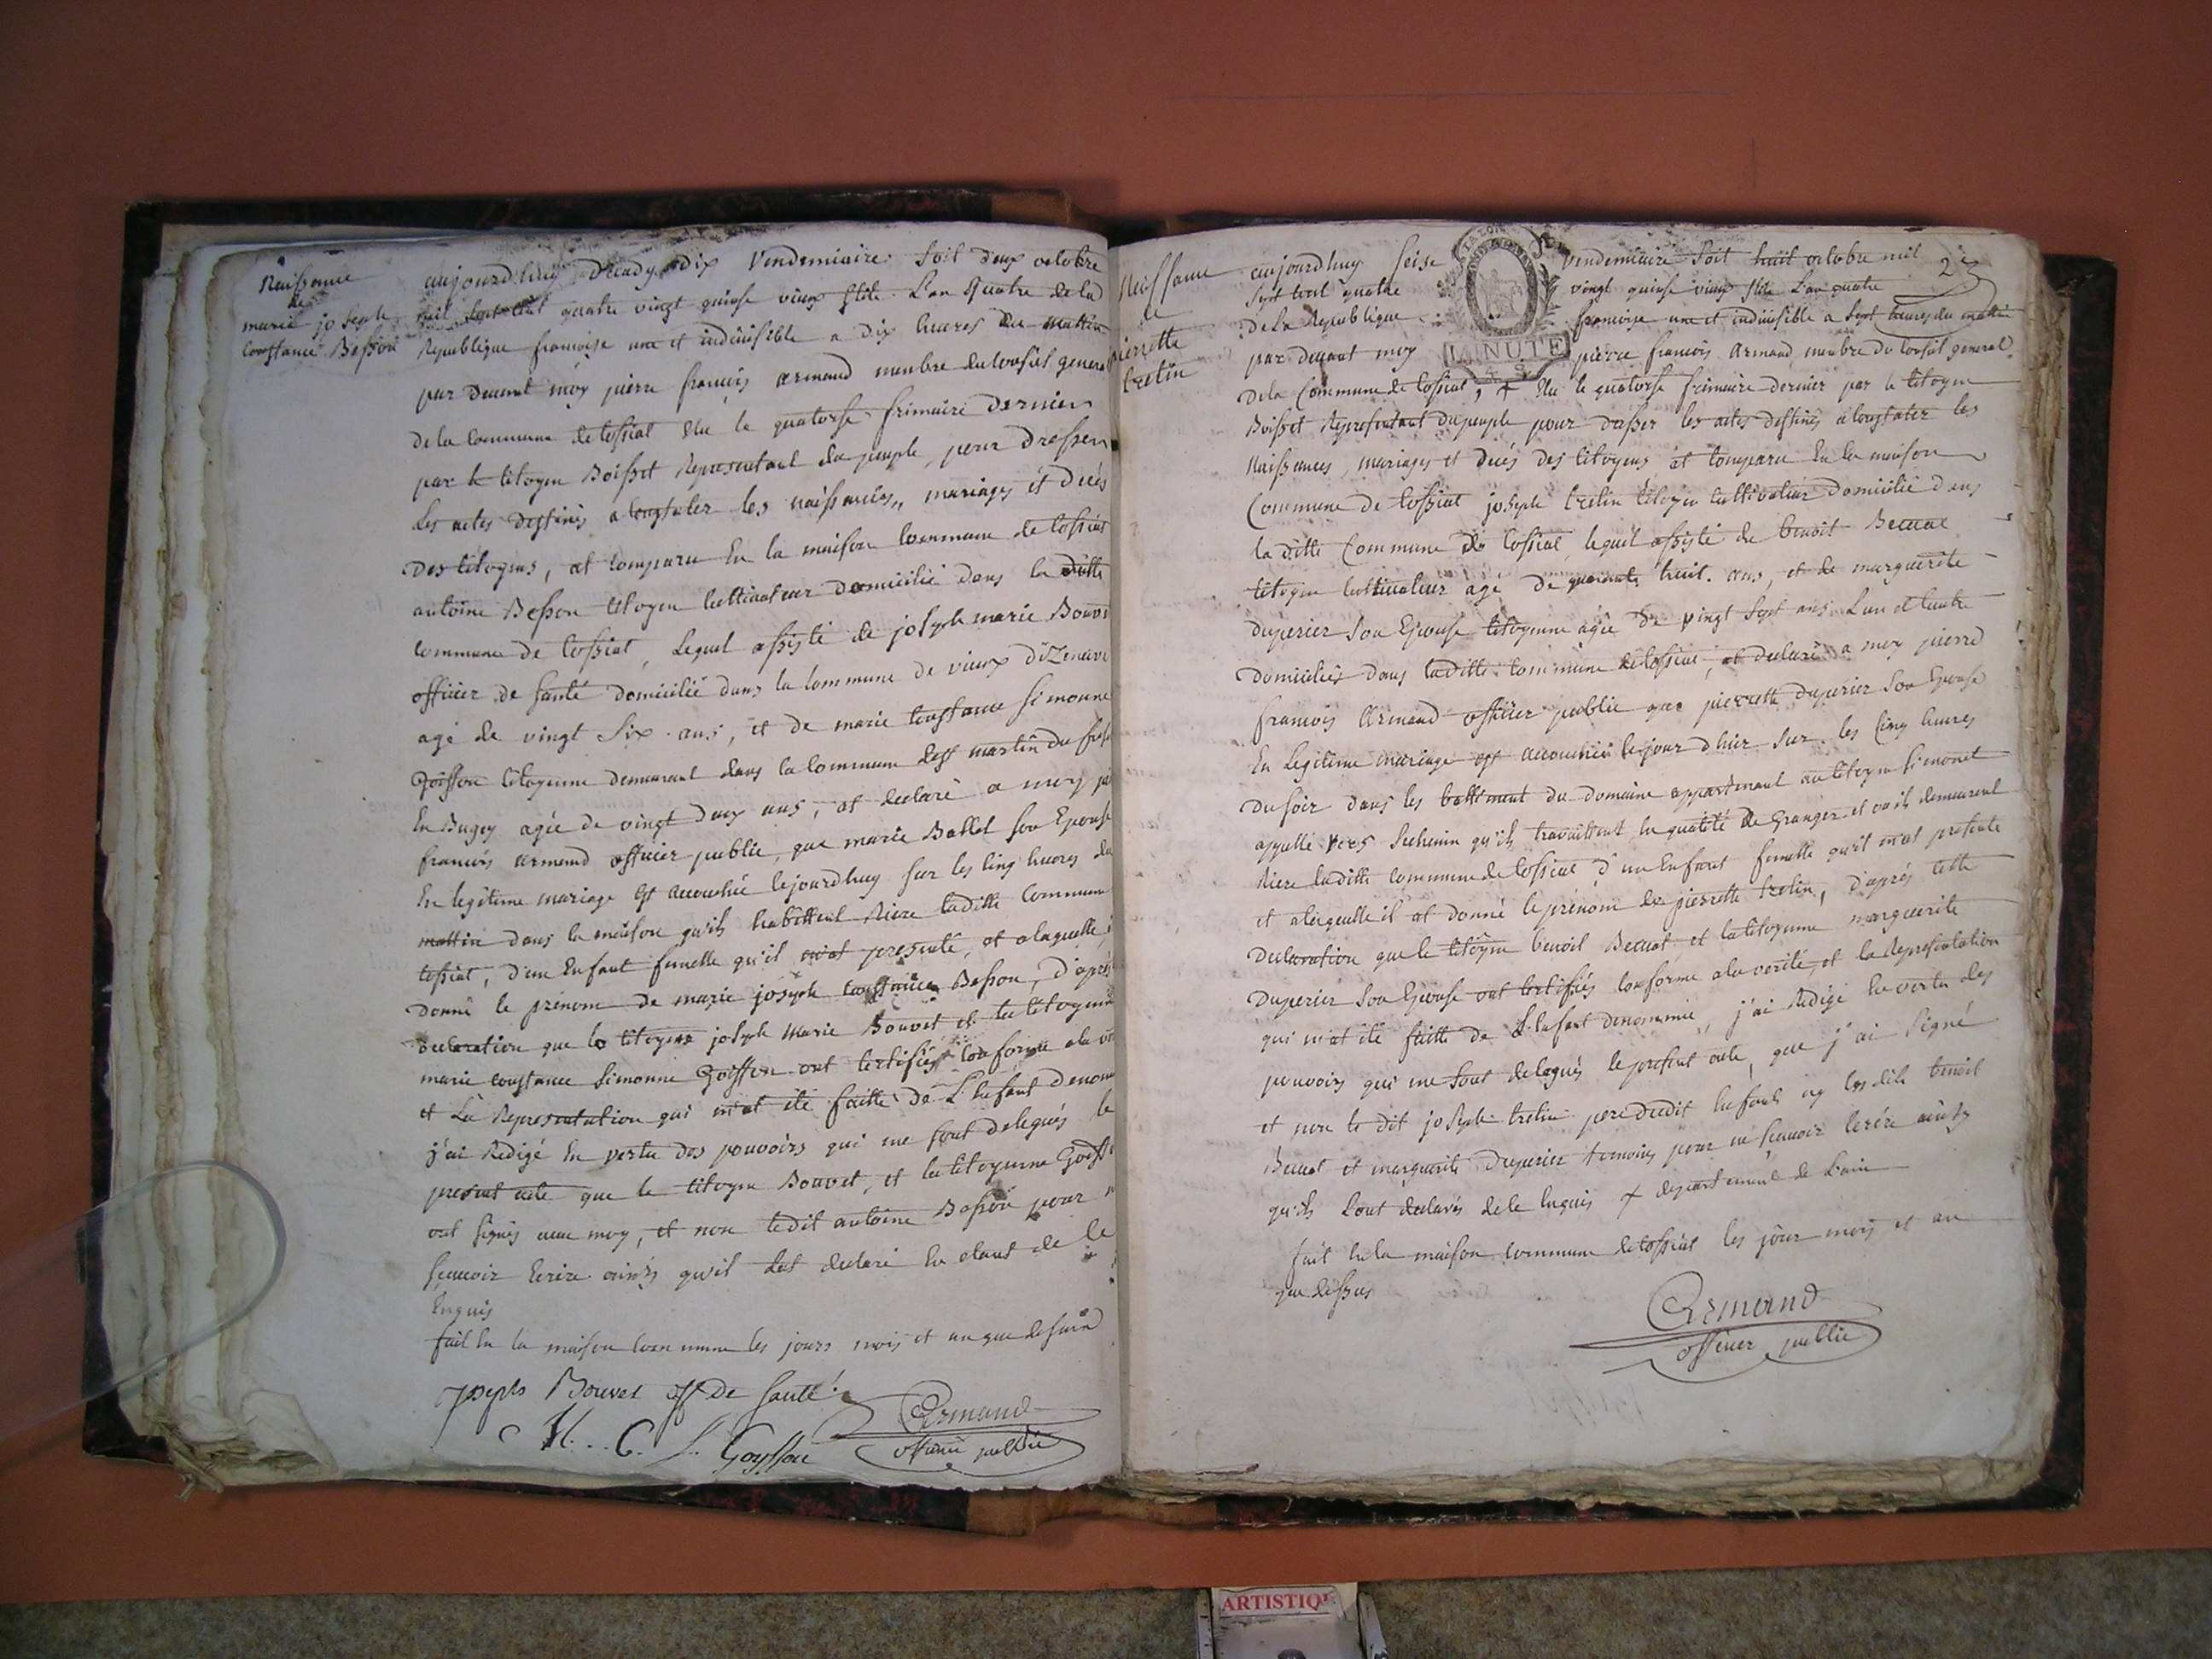 Naissance
de
marie joseph
constance Besson
aujourd'huy Decady dix Vendemiaire soit deux octobre
mil sept cent quatre vingt quinse vieux stile L'an quatre de la
Republique francoise une et indivisible a dix heures du mattin
par devant moy pierre francois armand membre du conseil general
de la commune de Cossiat élu le quatorse frimaire dernier
par le citoyen Boisset Representant du peuple, pour dresser
Les actes destinés a constater les naissances, mariages et décés
Des citoyens, at comparu En la maison commune de Cossiat
antoine Besson citoyen cultivateur domicilié dans la ditte
commune de Cossiat, Lequel assisté de joseph marie Bouvet
officier de santé domicilié dans la commune de vieux d'izenave
agé de vingt six ans, et de marie constance simonne
Goiffon citoyenne demeurant dans la commune de st martin du
En Bugey agée de vingt deux ans, at declaré a moy
francois armand officier public, que marie Ballet son Epouse
En legitime mariage est accouchée lejourdhuy sur les cinq heures du
mattin dans la maison qu'ils habittent Riere laditte commune
Cossiat, d'un Enfant femelle qu'il m'at presenté, et alaquelle
donné le prénom de marie joseph constance Besson, d'aprés
declaration que le citoyen joseph marie Bouvet et la citoyenne
marie constance simonne Goiffon ont certifiés conforme a la
et La Representation qui m'at été faitte de L'Enfant denom
j'ai Redigé En vertu des pouvoirs qui me sont delegués le
present acte que le citoyen Bouvet, et la citoyenne Goiff
ont signés avec moy, et non ledit antoine Besson pour
sçavoir Ecrire ainsy qu'il L'at declaré En etant de le
Enquis
fait En la maison commune les jours mois et an que dessus
joseph Bouvet off de santé
M. C. S. Goyffon
Armand
officié public
Naissance
de
pierrette
Cretin
2
aujourdhuy seise vendemiaire soit huit octobre mil
sept cent quatre vingt quinse vieux stile L'an quatre
de la Republique francoise une et indivisible a sept heures du mattin
par devant moy pierre francois Armand membre du conseil general
LA LOI
MINUTE
de la Commune de Cossiat, + élu le quatorse frimaire dernier par le citoyen
Boisset Representant du peuple pour dresser les actes destinés a constater les
Naissances, mariages et décés des citoyens at comparu En la maison
Commune de Cossiat joseph Cretin citoyen cultivateur domicilié dans
la ditte Commune de Cossiat, lequel assisté de benoit Becuat
citoyen cultivateur agé de quarante huit ans, et de marguerite
duperier son Epouse citoyenne agée de vingt sept ans L'un et Lautre
domiciliés dans laditte commune de Cossiat, at declaré a moy pierre
francois Armand officier public que pierrette duperier son Epouse
En Legitime mariage est accouchée le jour dhier sur les cinq heures
du soir dans les battiment du domaine appartenant au citoyen simonet
appellé vers suchenin qu'ils travaillent En qualité de Granger et ou ils demeurent
Riere laditte commune de Cossiat d'un Enfant femelle qu'il m'at presenté
et alaquelle il at donné le prénom de pierrette Cretin, d'aprés cette
declaration que le citoyen benoit Becuat et la citoyenne marguerite
duperier son Epouse ont certifiés conforme ala verité, et la Representation
qui m'at été faitte de L'Enfant denommé, j'ai Redigé En vertu des
pouvoirs qui me sont delegués le present acte, que j'ai signé
et non le dit joseph Cretin pere dudit Enfant ny les dits benoit
Becuat et marguerite Duperier temoins pour ne sçavoir Ecrire ainsy
qu'ils L'ont declarés de le Enquis + departement de L'ain
fait En la maison commune de Cossiat les jour mois et an
que dessus
Armand
officier public
ARTISTIQUE